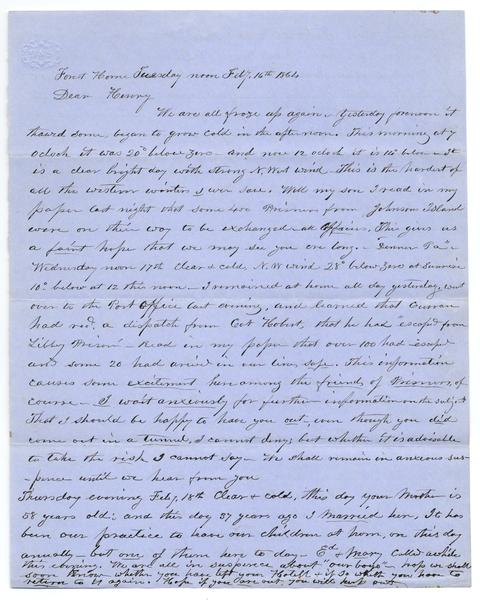 Forest Home Tuesday noon Feby, 16th 1864
Dear Henry
We are all froze up again. Yesterday forenoon it
thawd some, began to grow cold in the afternoon. This morning at 7
oclock it was 20° below Zero - and now 12 oclock it is 15° below - It
is a clear bright day with strong N. West wind - This is the hardest of
all the western winters I ever saw. Well my son I read in my
paper last night that some 400 Prisoners from Johnson Island
were on their way to be exchanged all Officers. This gives us
a faint hope that we may see you ere long. - "Dinner Pa" -
Wednesday noon 17th Clear & cold N.W wind 28° below Zero at Sunrise
10° below at 12 this noon - I remained at home all day yesterday, went
over to the Post Office last evening, and learned that Curran
had recd. a dispatch from Cot Hobart, that he had "escapd from
Libby Prison" - Read in my paper that over 100 had escapd
and some 20 had arived in our lines safe. This information
causes some excitement here among the friends of Prisoners, of
course - I wait anxiously for further information on the subject
That I should be happy to have you out, even though you did
come out in a tunnel, I cannot deny; but whether it is advisable
to take the risk I cannot say - We shall remain in anxious sus-
-pence until we hear from you
Thursday evening Feby, 18th Clear & cold, this day your Mother is
58 years old: and this day 37 years ago I married her, It has
been our practice to have our children at home, on this day
annually - but one of them here to day - Ed & Mary Calld awhile
this evening. We are all in suspence about "our boys" - hope we shall
soon know whether you have left your Hotell & if so whether you have to
return to it again. Hope if you are out you will keep out